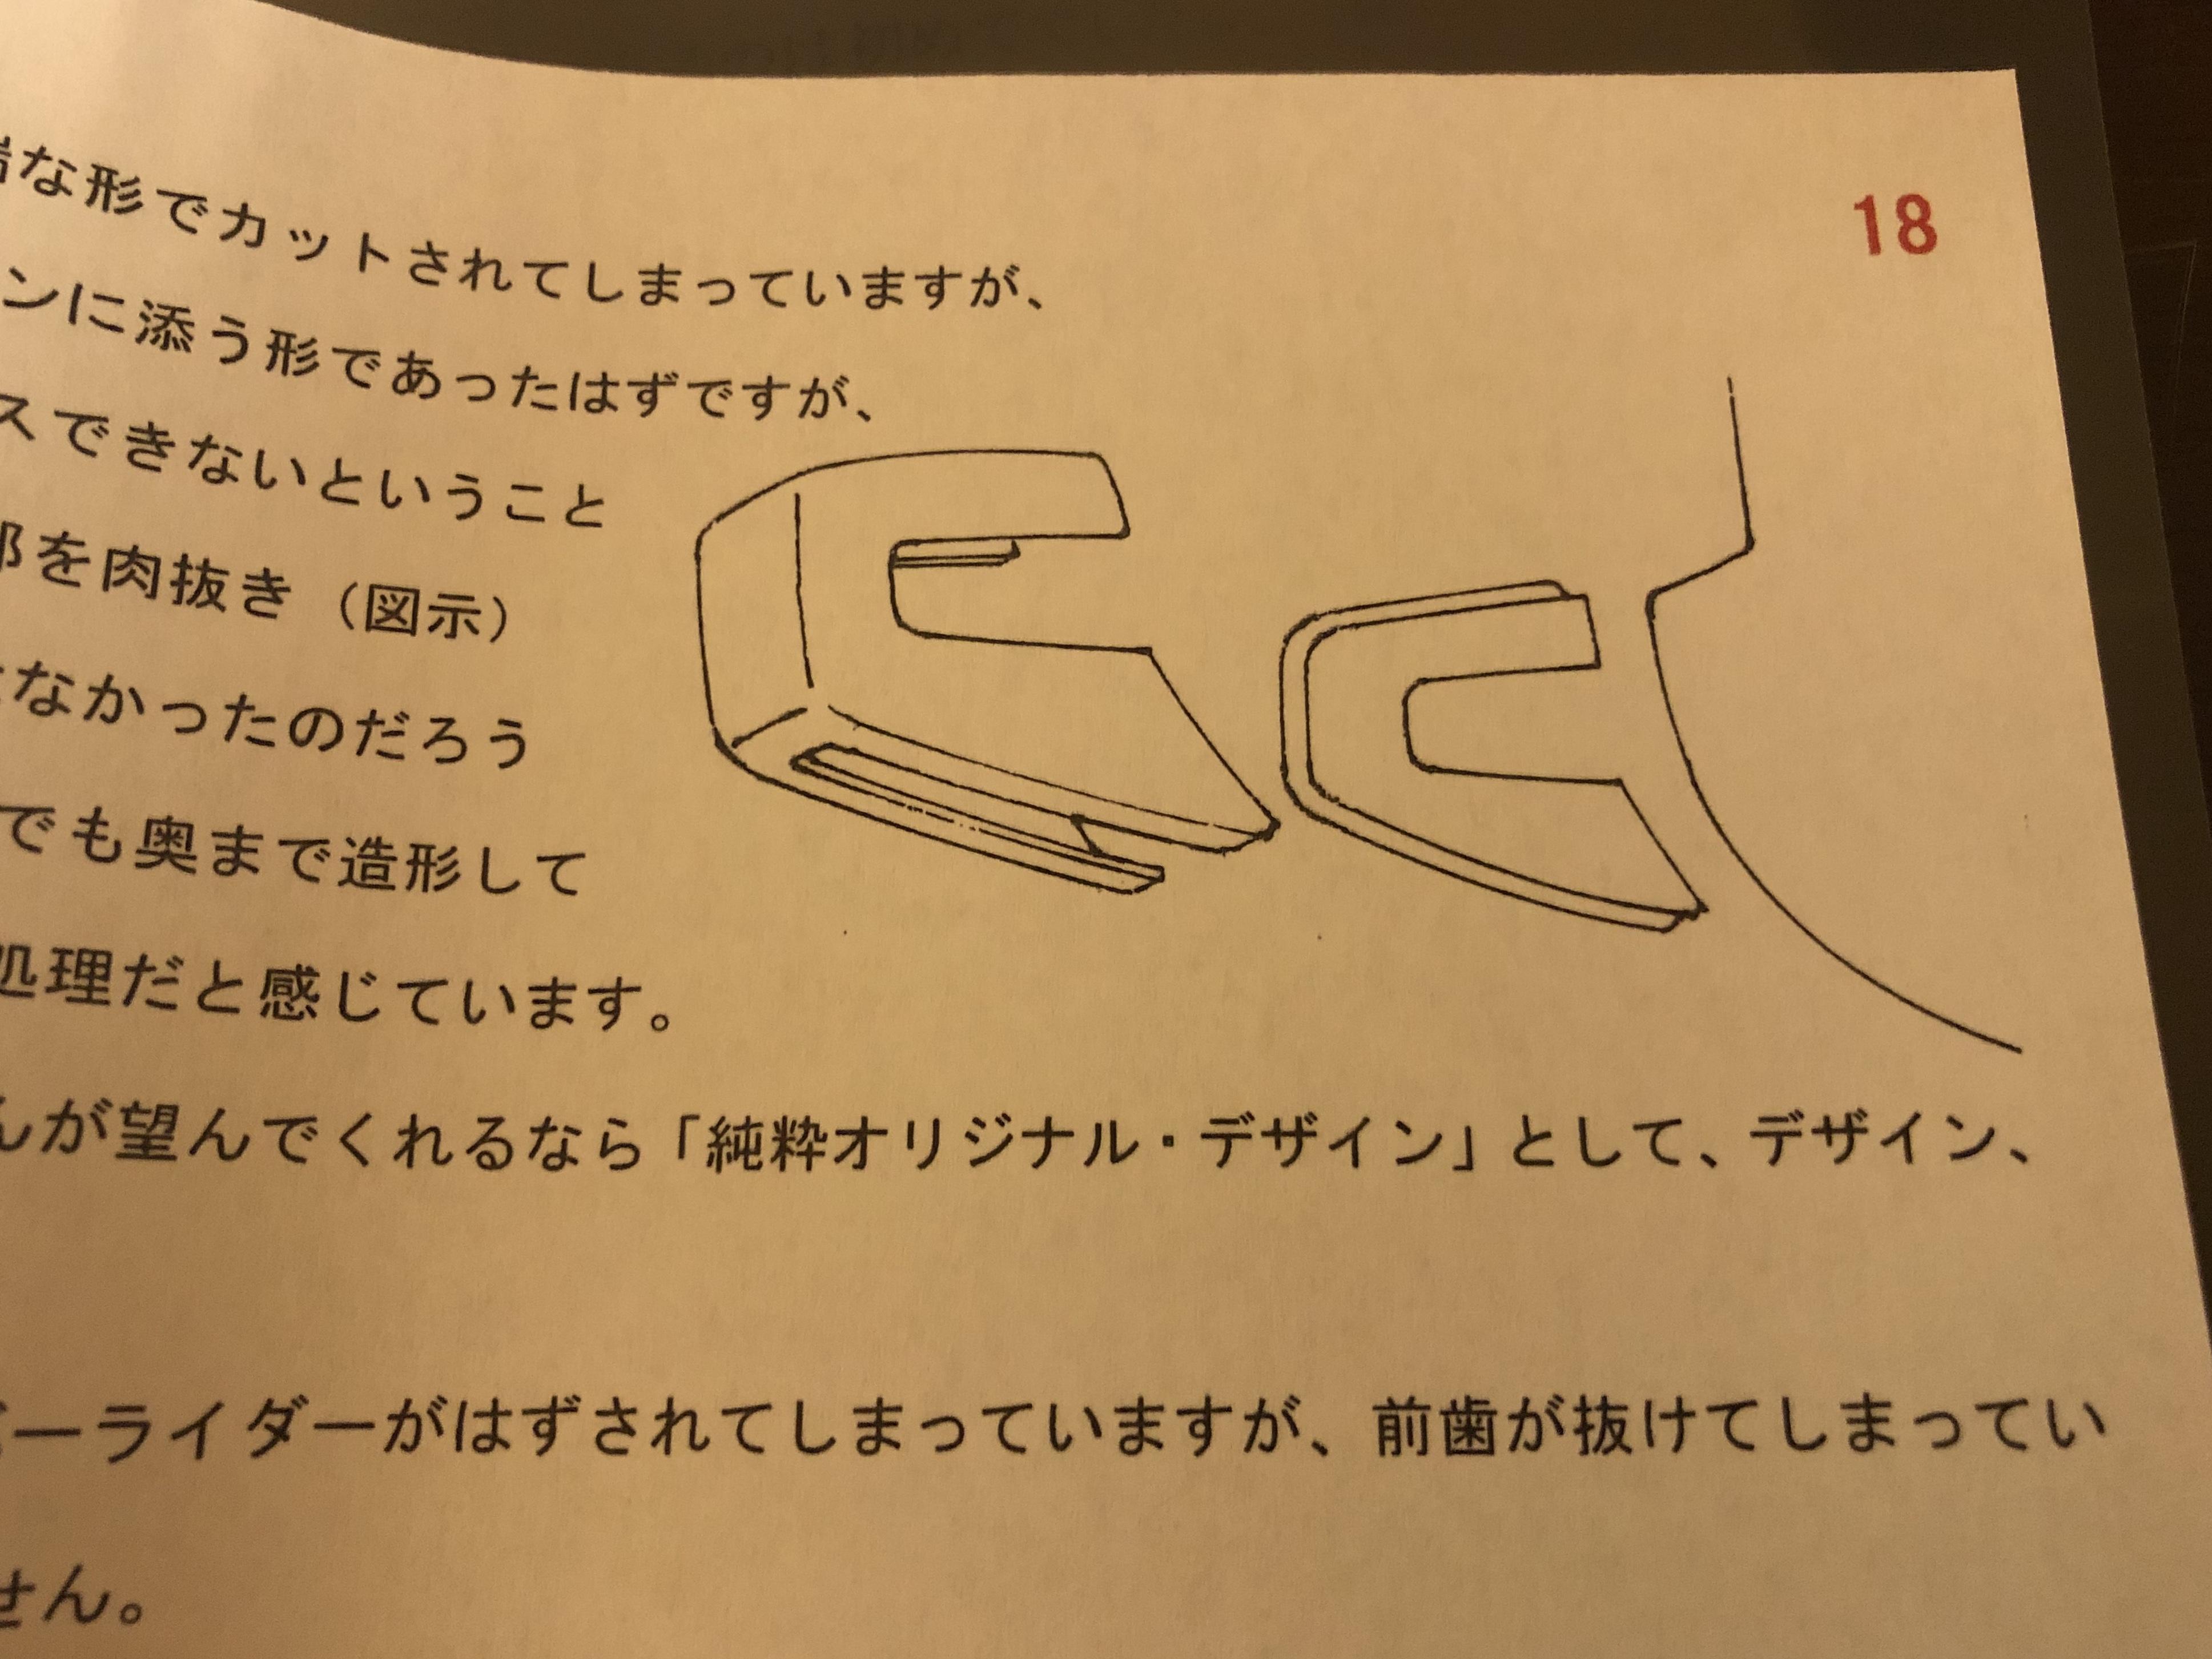 18
な形でカットされてしまっていますが、
ンに添う形であったはずですが、
スできないということ
を肉抜き（図示）
なかったのだろう
でも奥まで造形して
処理だと感じています。
んが望んでくれるなら「純粋オリジナル・デザイン」として、デザイン、
ーライダーがはずされてしまっていますが、前歯が抜けてしまってい
せん。